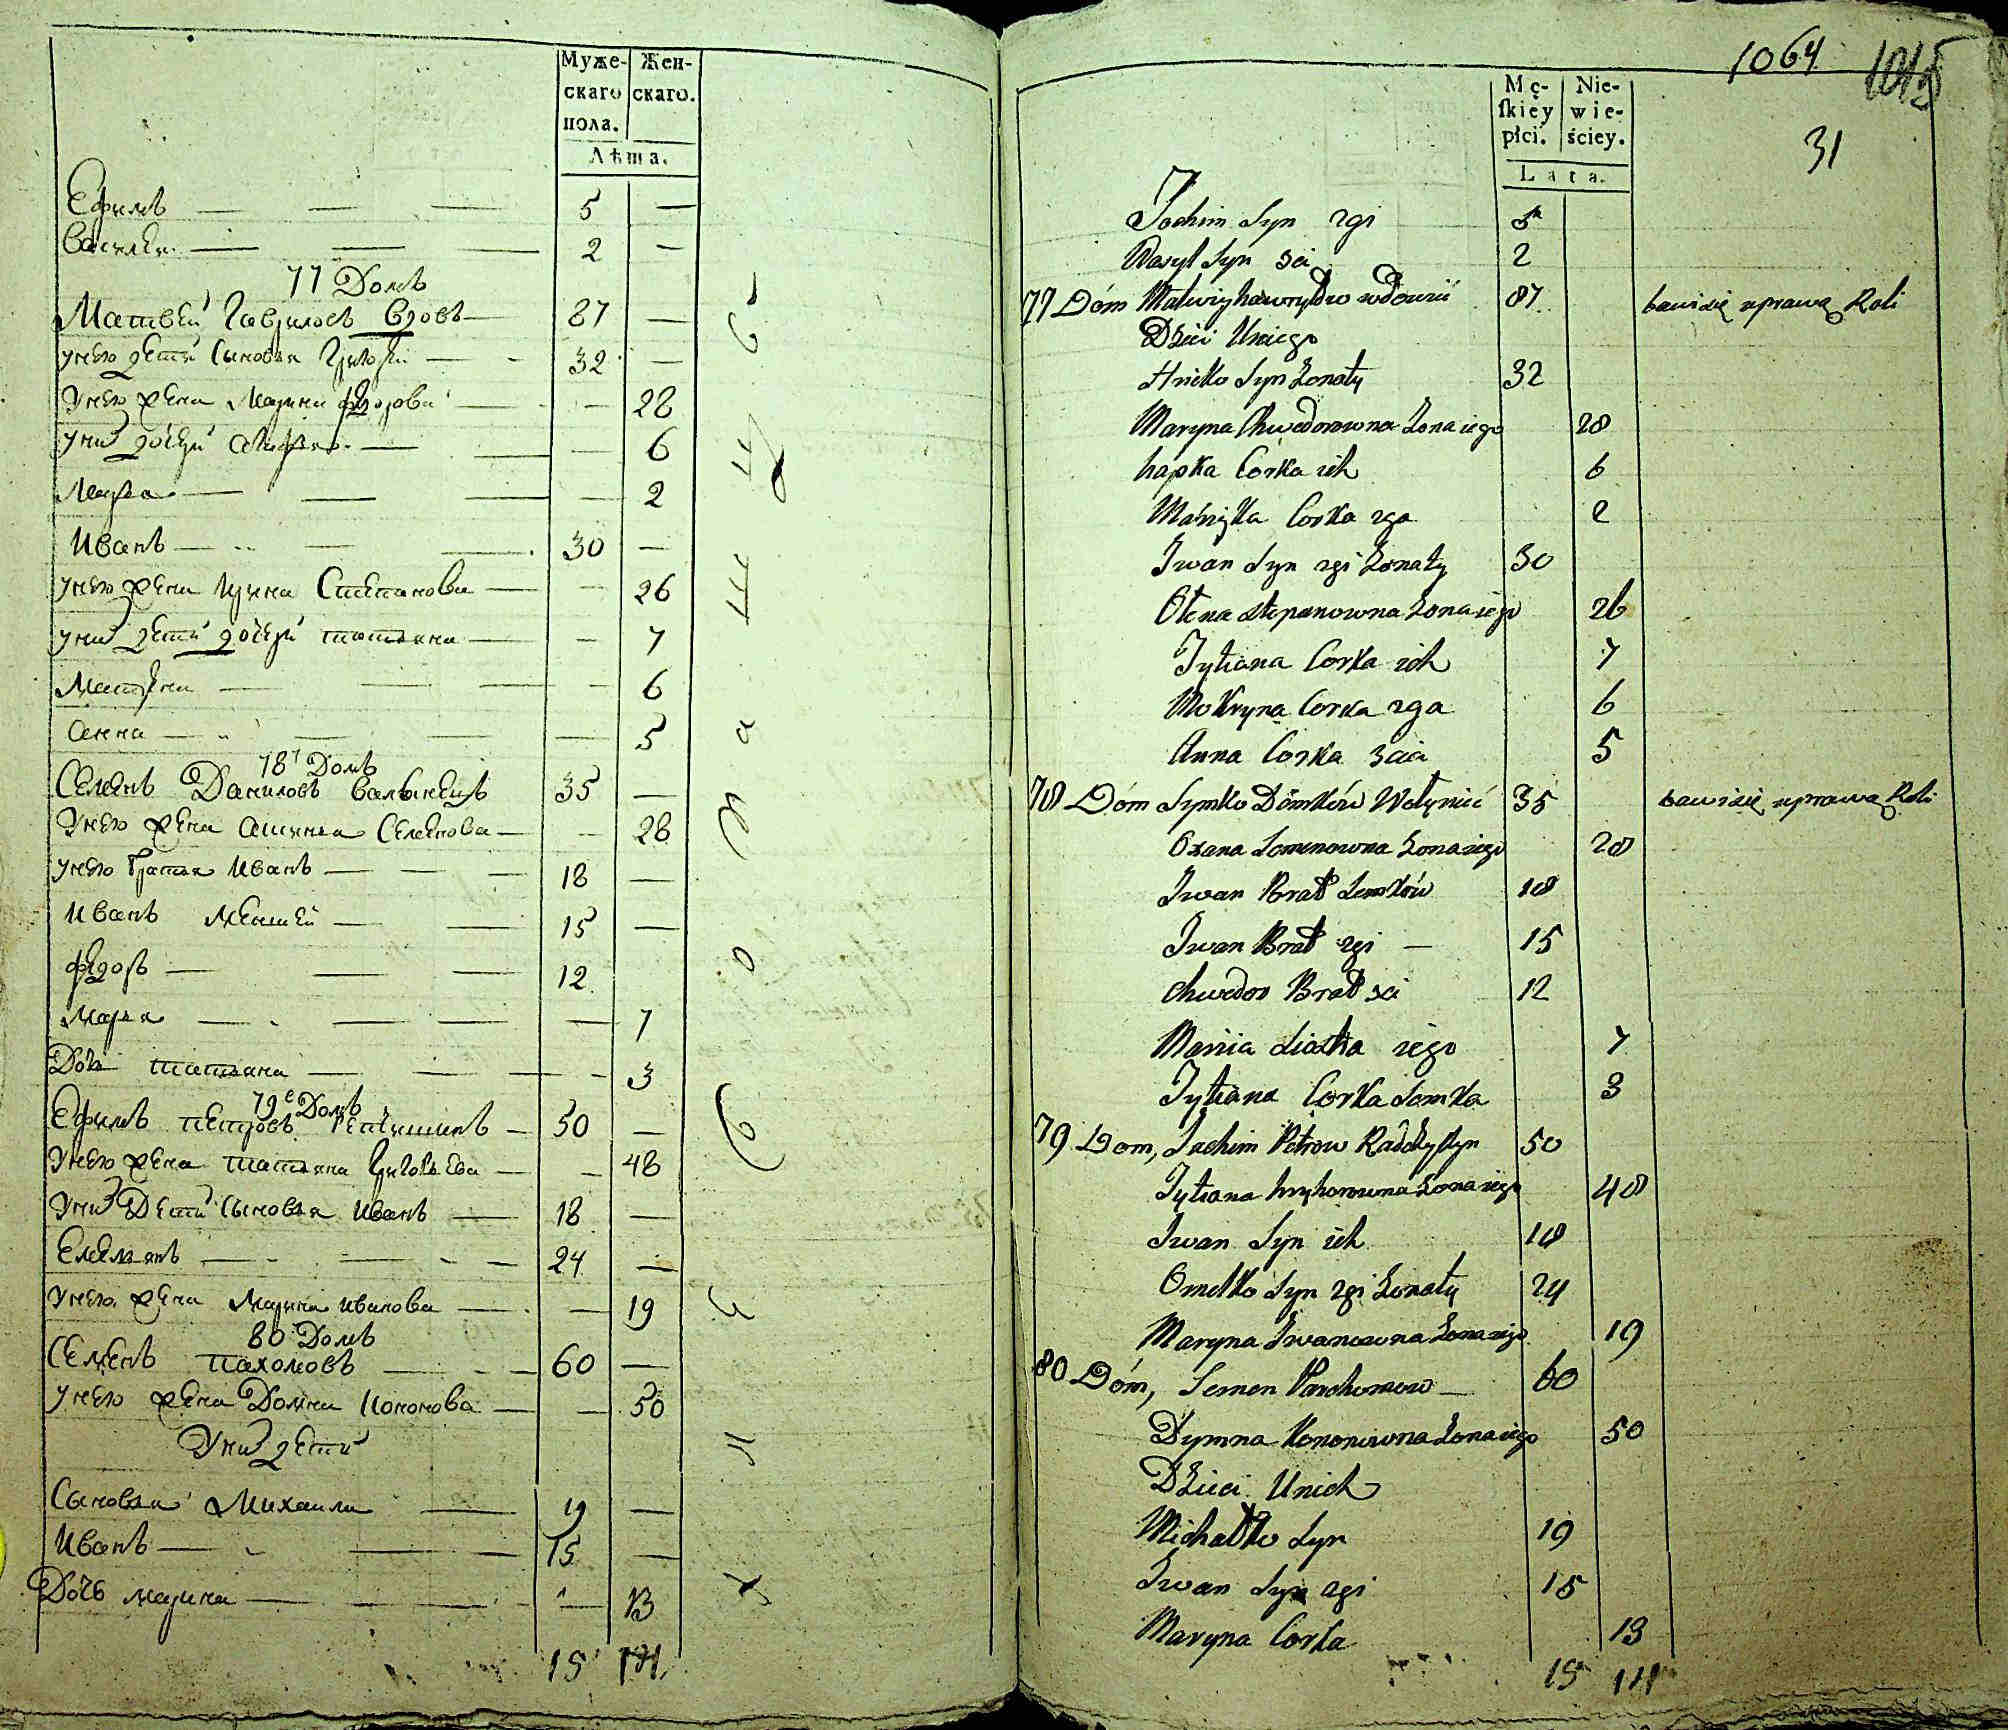 Муже-
скаго
пола.
Жен-
скаго.
Лѣта.
Ефимъ — — — 5 —
Василеи — — — 2 —
77 Домъ
Матвеи Гавриловъ вдовъ — 87 —
унего дети Сыновья Григореи — 32 —
Унего жена Марина федорова — — 28
уних дочери — — 6
Марья — — — — 2
Иванъ — — — 30 —
унего жена Ирина Степанова — — 26
уних дети дочери татьяна — — 7
Матрена — — — — 6
Анна — — — — 5
78 Домъ
Семенъ Даниловъ валынецъ 35 —
Унего жена Аксинья Семенова — — 28
унего братья Иванъ — — — 18 —
Иванъ меншей — — 15 —
федоръ — — — 12 —
Марья — — — — 7
Дочь татьяна — — — — 3
79 Домъ
Ефимъ петровъ — 50 —
Унего жена татьяна Григорьева — — 48
Уних Дети Сыновья Иванъ — 18 —
Емельянъ — — — 24 —
Унего жена Марина иванова — — 19
80 Домъ
Семенъ пахомовъ — — — 60 —
Унего жена Домна Кононова — — 50
Уних дети
Сыновья Михаила — 19 —
Иванъ — — — 15 —
Дочь марина — — — — 13
15 14
1064
1015
31
Mę-
skiey
płci.
Nie-
wie-
ściey.
Lata.
Jochim Syn 2gi 5
Wasyl Syn 3ci 2
77 Dóm Matwiy hawryłow wdowiec 87 bawi się uprawą Roli
Dzieci Uniego
Hricko Syn Żonaty 32
Maryna Chwedorowna Żona iego 28
hapka Corka ich 6
Maryjka Corka 2ga 2
Iwan Syn 2gi Żonaty 30
Olena Stepanowna Żona iego 26
Tytiana Corka ich 7
Mokryna Corka 2ga 6
Anna Corka 3cia 5
78 Dóm Symko Dómków Wołyniec 35 bawi się uprawą Roli
Oxana Semenowna Żona iego 28
Iwan Brat Semków 18
Iwan Brat 2gi — 15
Chwedor Brat 3ci 12
Mariia Siostra iego 7
Tytiana Corka Semka 3
79 Dom, Jachim Petrow 50
Tytiana hryhorowna Żona iego 48
Iwan Syn ich 18
Omelko Syn 2gi Żonaty 24
Maryna Iwanowna Żona iego 19
80 Dóm, Semen Parchomow — 60
Dymna Kononowna Żona iego 50
Dzieci Unich
Michałko Syn 19
Iwan Syn 2gi 15
Maryna Corka 13
15 14